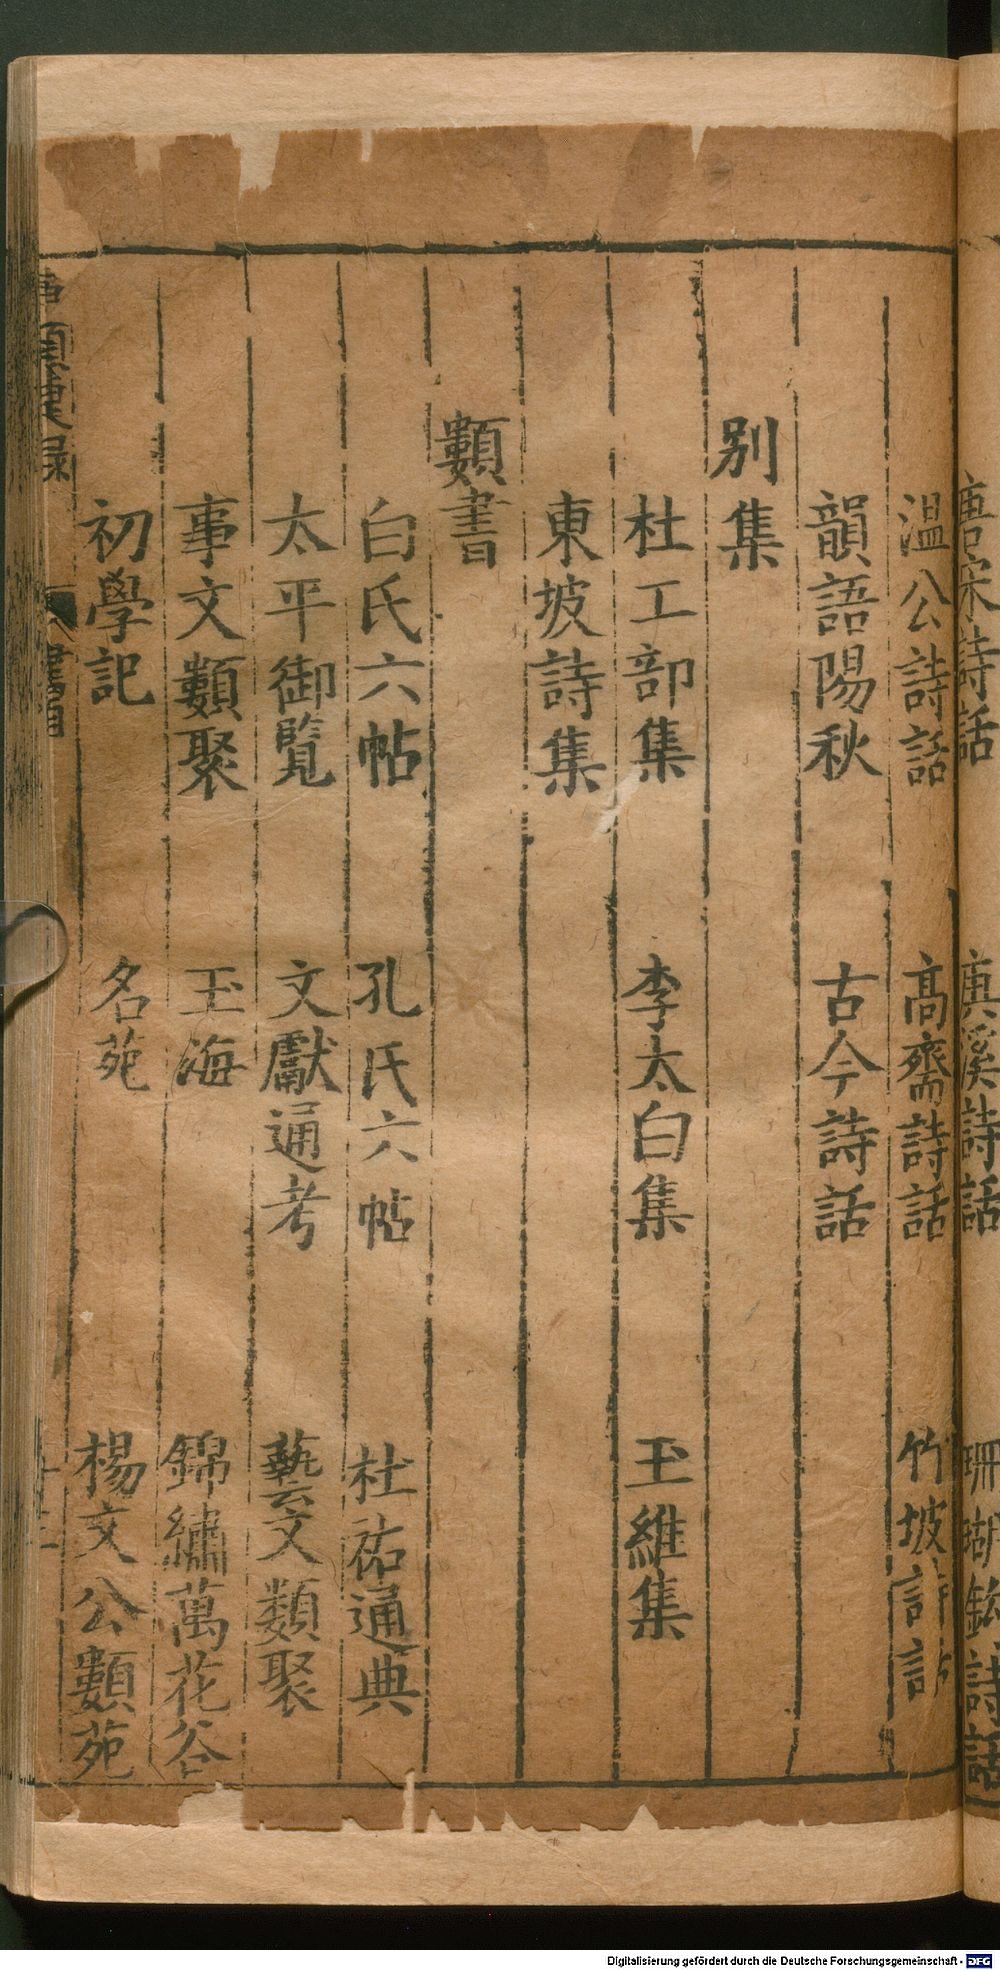 唐宋詩話　　溪詩話　珊瑚鈎詩話
溫公詩話　高齋詩話　竹坡詩話
韻語陽秋　古今詩話
别集
杜工部集　李太白集　王維集
東坡詩集
類書
白氏六帖　孔氏六帖　杜祐通典
太平御覽　文獻通考　藝文類聚
事文類聚　玉海　錦繡萬花谷
初學記　名苑　楊文公類苑
Digitalisierung gefördert durch die Deutsche Forschungsgemeinschaft - DFG